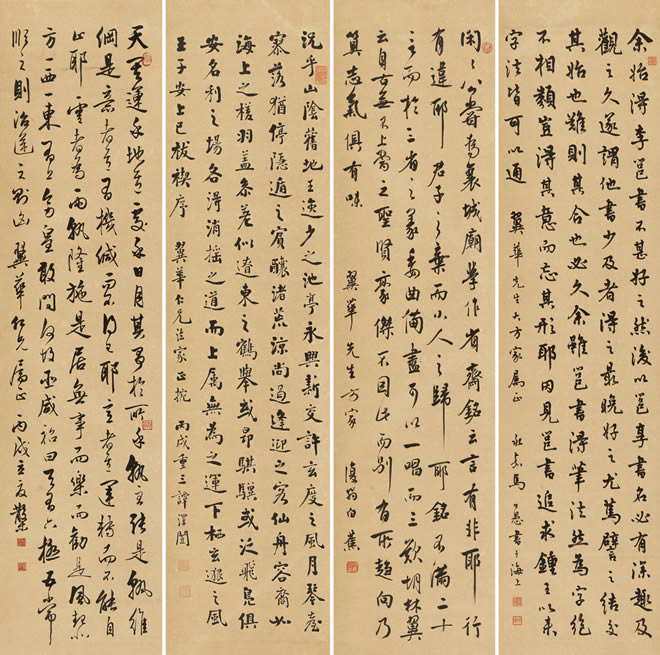 余始得李邕書不甚好之然後以邕享書名必有深趣及
觀之久遂謂他書少及者得之最晚好之尤篤譬之結交
其始也難則其合也必久余雖邕書得筆法然為字絶
不相類豈得其意而忘其形耶因見邕書追求鍾王以来
字法皆可以通 翼華先生大方家属正 永嘉馬公愚書于海上
閑閑公嘗為襄城廟學作省齋銘云言有非耶行
有違耶君子之棄而小人之歸耶銘不滿二十
言而於三省之義委曲備盡可以一唱而三歎胡林翼
云自古無不上當之聖賢豪傑不因此而別有所趨向乃
算志氣俱有味 翼華先生方家 復翁白蕉
況乎山陰舊地王逸少之池亭永興新交許玄度之風月琴臺
寥落猶停隱遁之賓釀渚荒涼尚過逢迎之客仙舟容裔如
海上之槎羽蓋參差似遼東之鶴舉或昂騏驥或泛飛鳧俱
安名利之場各得消搖之道而上屬無為之運下栖玄邈之風
王子安上巳祓禊序 翼華仁兄法家正捥 丙戌重三譚澤闓
天其運乎地其處乎日月其爭於所乎孰主張是孰維
綱是意者其有機緘而不得已耶意者其運轉而不能自
止耶雲者為雨孰隆施是居無事而樂而勸是風起北
方一西一東 敢問何故巫咸祒曰天有六極五常
順之則治逆之則凶 翼華仁兄屬正 丙戌立夏